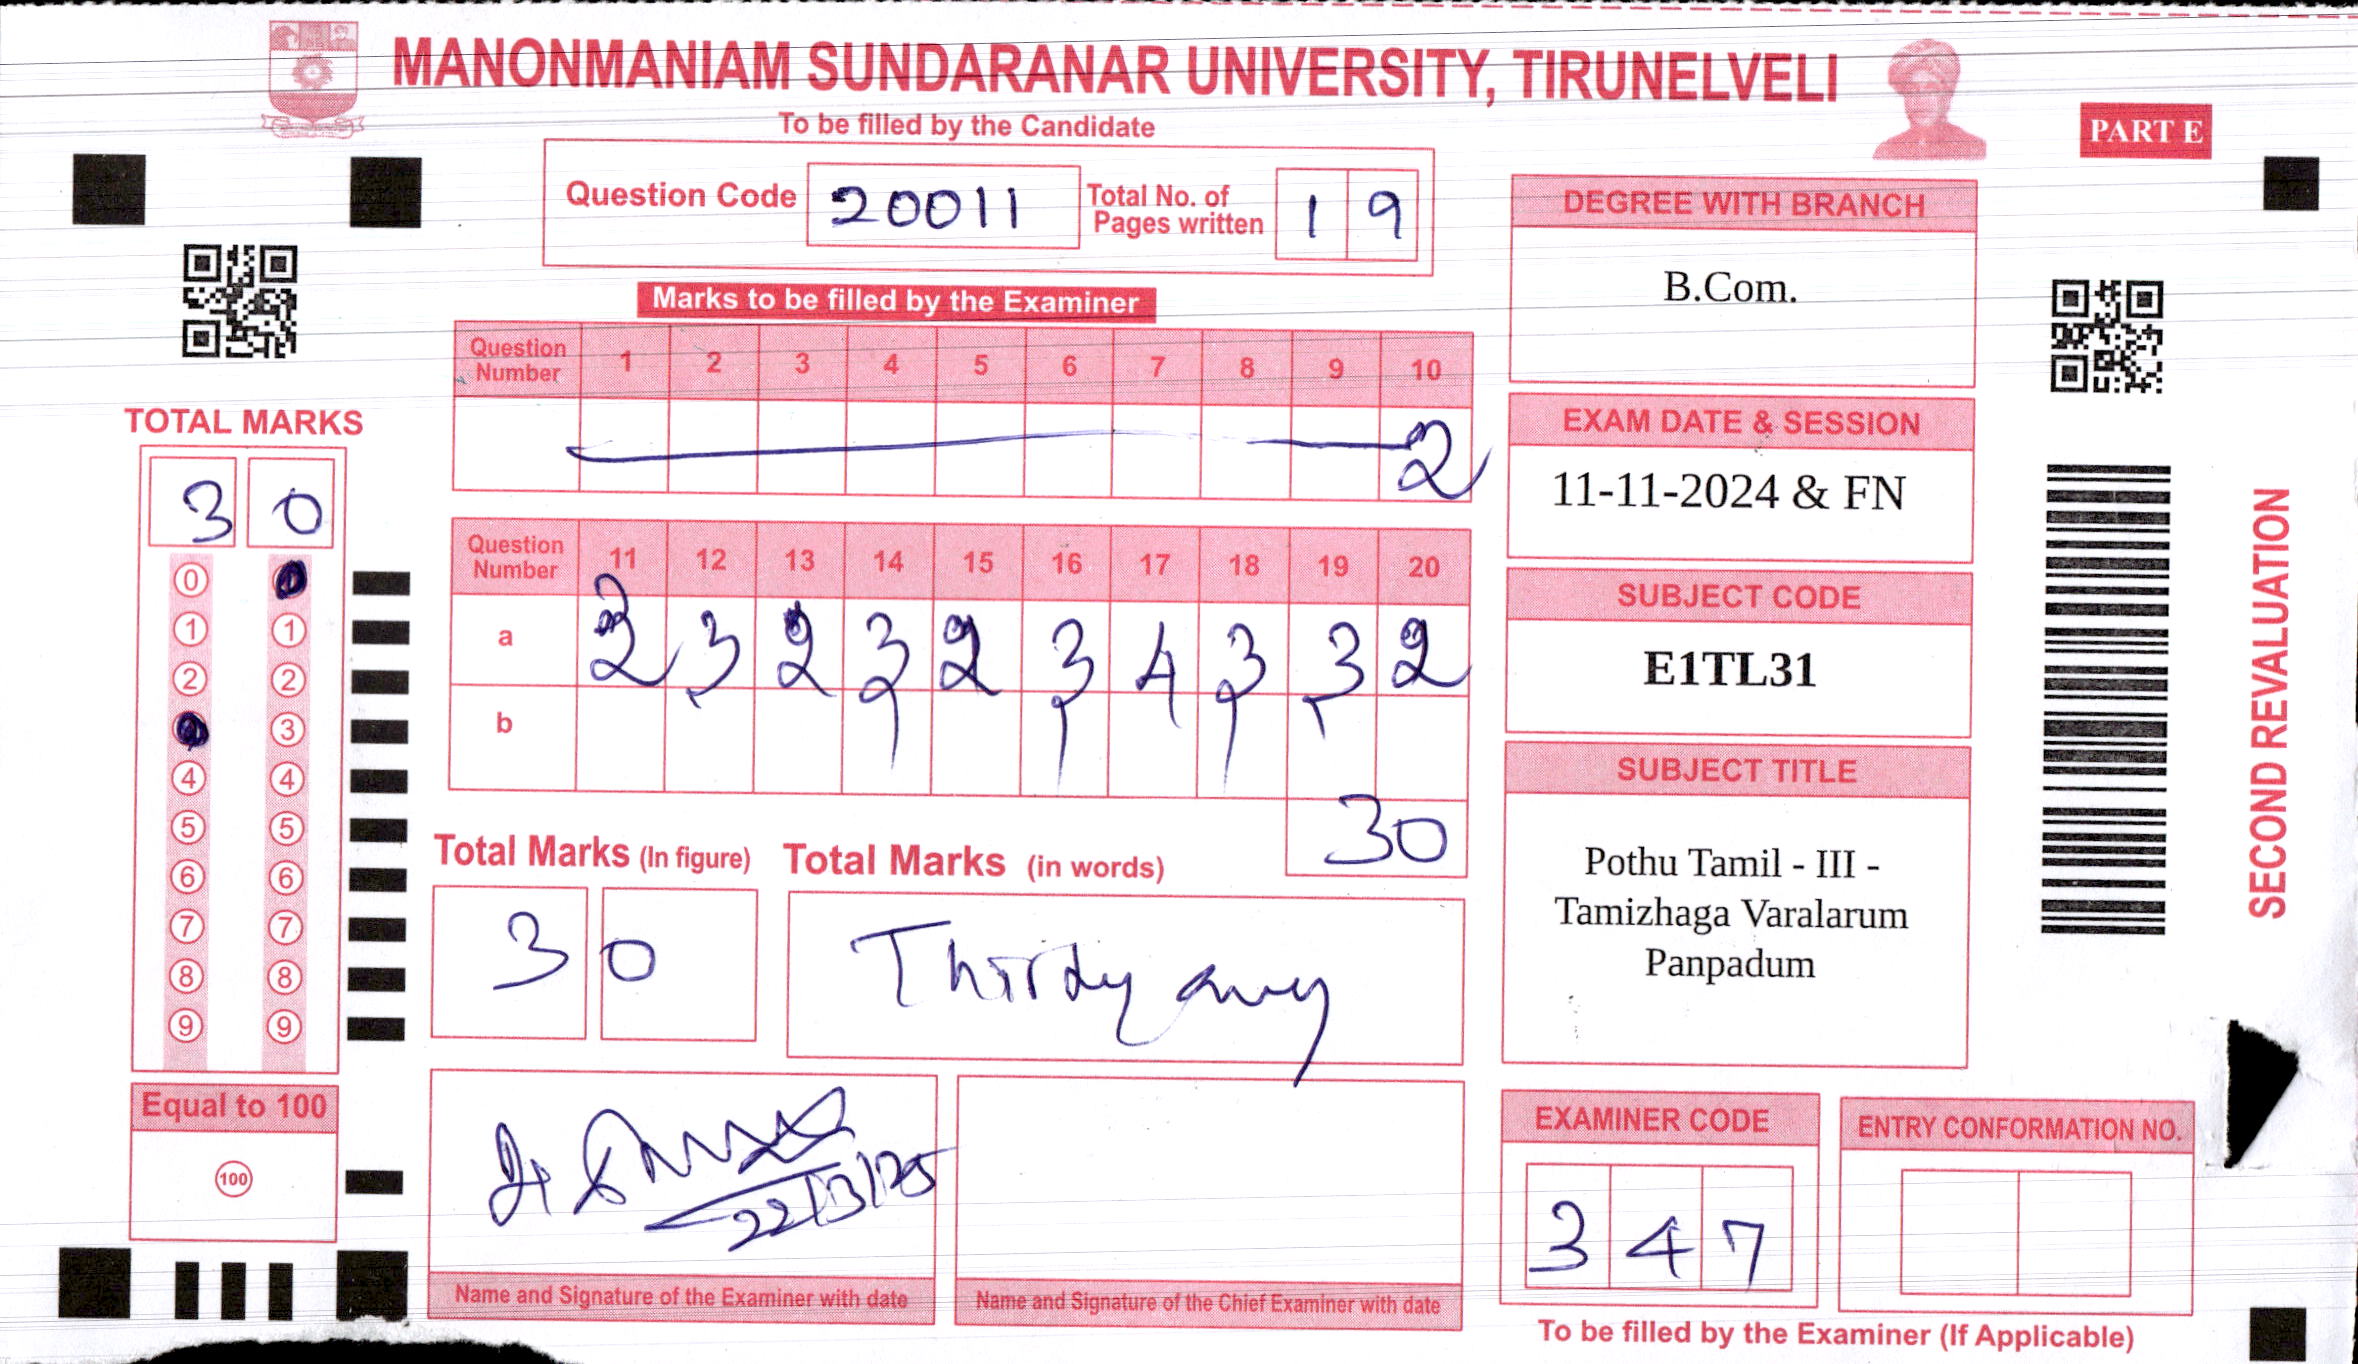 MANONMANIAM SUNDARANAR UNIVERSITY, TIRUNELVELI
To be filled by the Candidate
PART E
Question Code 20011 Total No. of Pages written 1 9
Marks to be filled by the Examiner
Question Number 1 2 3 4 5 6 7 8 9 10
2
Question Number 11 12 13 14 15 16 17 18 19 20
a 2 3 2 3 2 3 4 3 3 2
b
30
TOTAL MARKS
3 0
0
1 1
2 2
3
4 4
5 5
6 6
7 7
8 8
9 9
Equal to 100
100
Total Marks (In figure) Total Marks (in words)
3 0 Thirdy
22/3/25
Name and Signature of the Examiner with date
Name and Signature of the Chief Examiner with date
DEGREE WITH BRANCH
B.Com.
EXAM DATE & SESSION
11-11-2024 & FN
SUBJECT CODE
E1TL31
SUBJECT TITLE
Pothu Tamil - III -
Tamizhaga Varalarum
Panpadum
EXAMINER CODE
3 4 7
ENTRY CONFORMATION NO.
To be filled by the Examiner (If Applicable)
SECOND REVALUATION